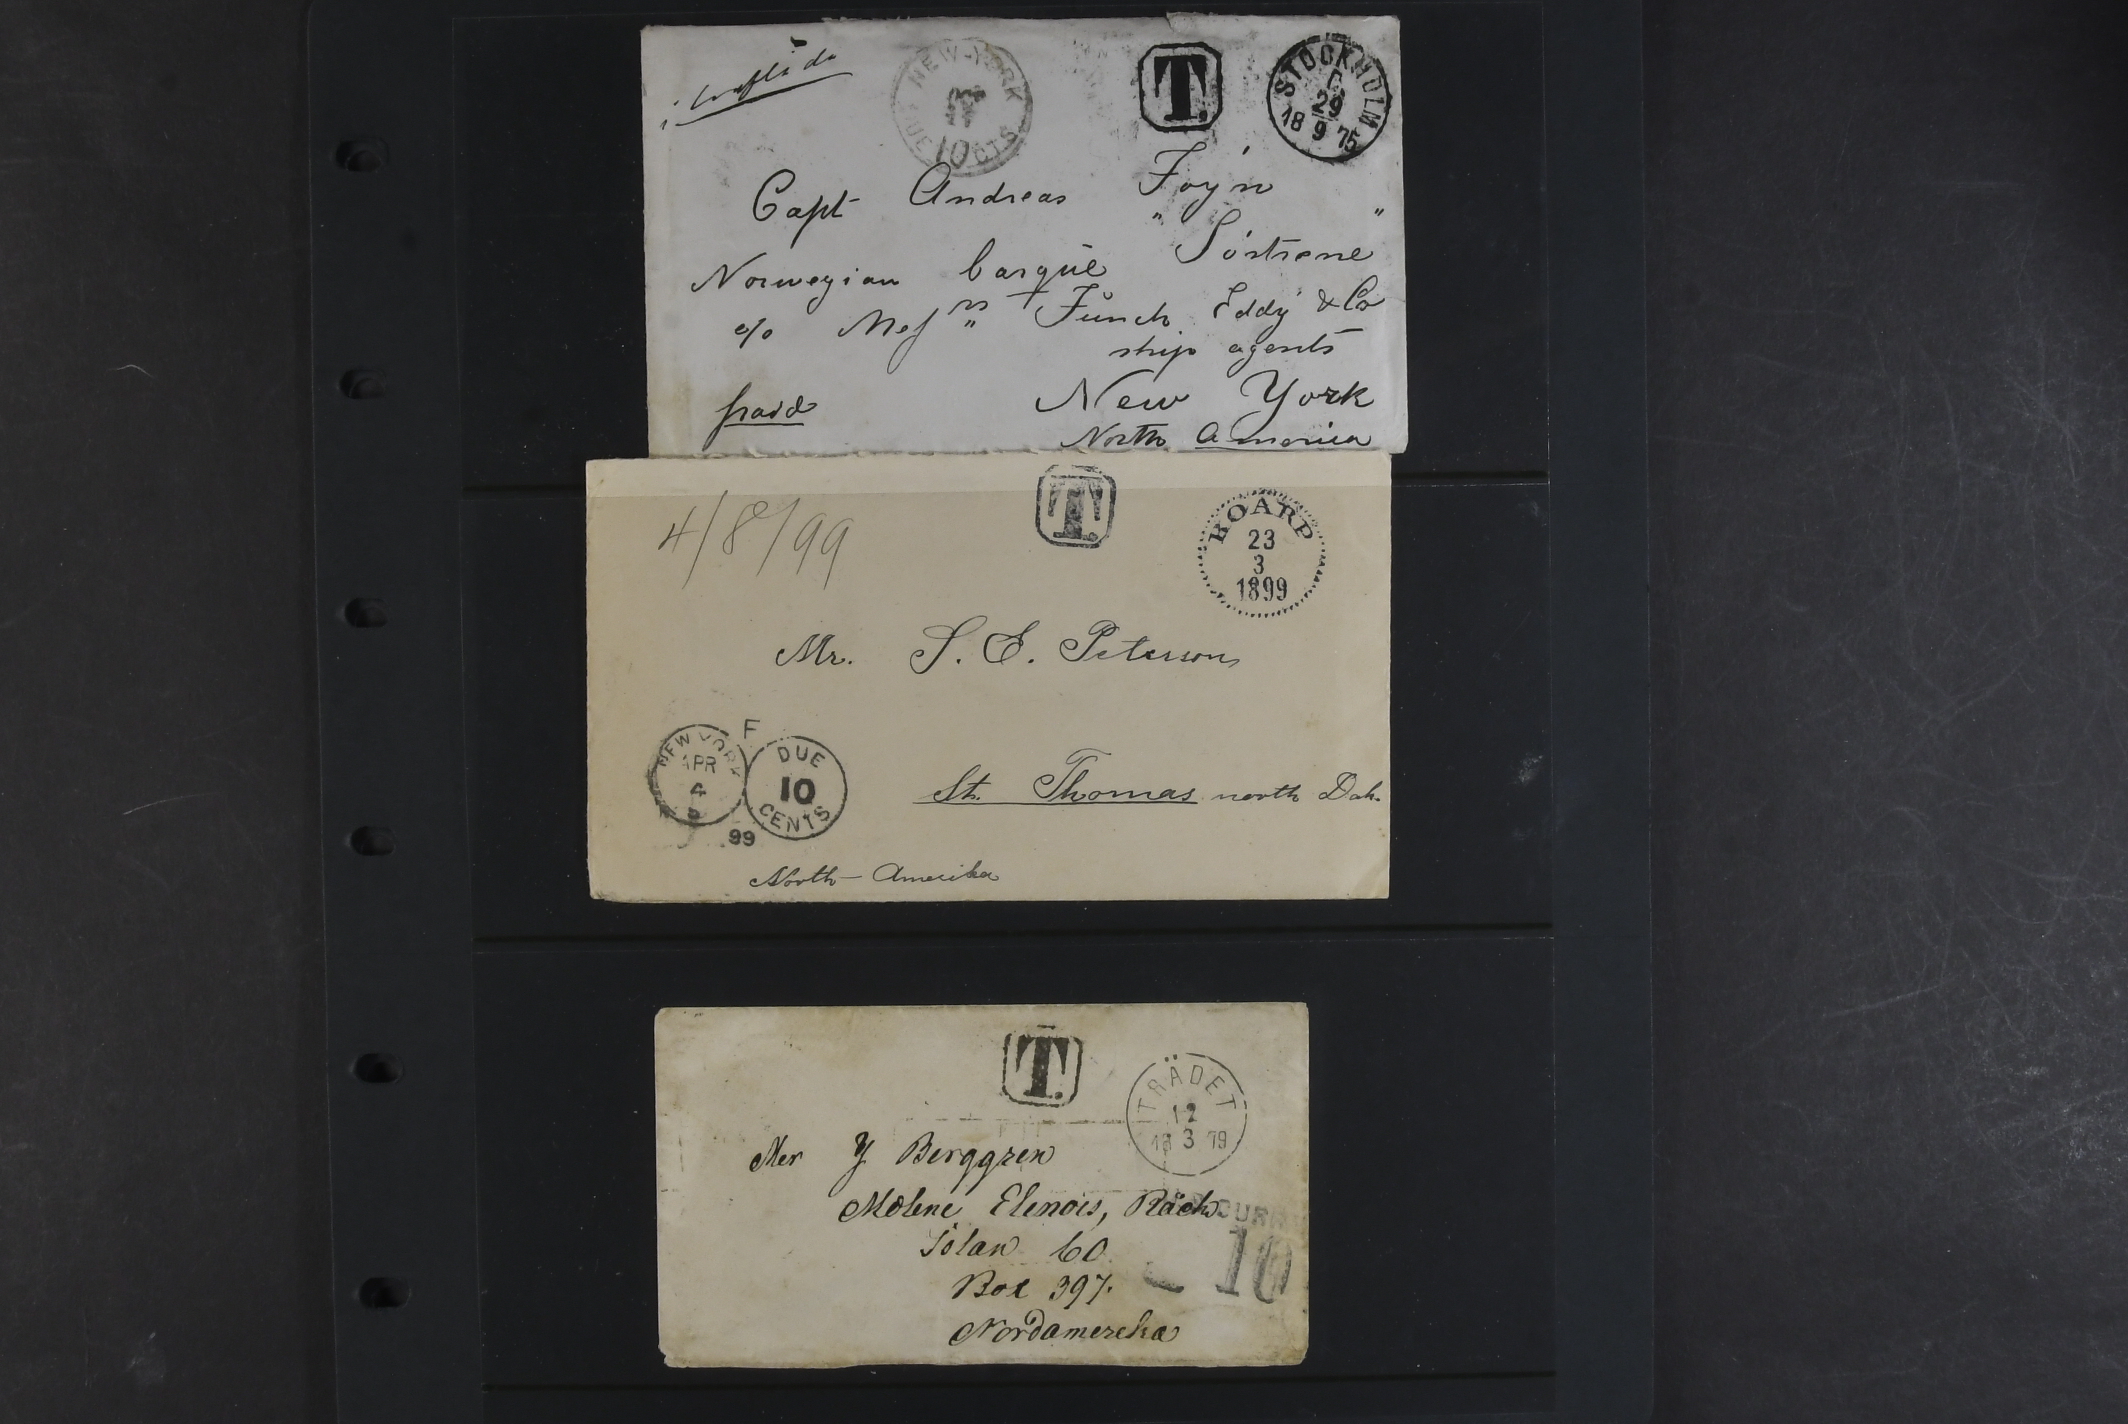 NEW-YORK
10 CTS
T.
STOCKHOLM
C
29
18 9 75
Capt Andreas Foyn
Norwegian barque "Sóstrene"
c/o Messrs Funch, Eddy & Co
ship agents
paid
New York
North America
4/8/99
T.
BOARP
23
3
1899
Mr. S. E. Peterson
St. Thomas north Dak.
NEW YORK
APR
4
99
F
DUE
10
CENTS
North Amerika
T.
TRÄDET
12
18 3 79
Mer Y Berggren
Molene Elenois, Räck
Iolan 60
Box 397.
Nordamereka
10